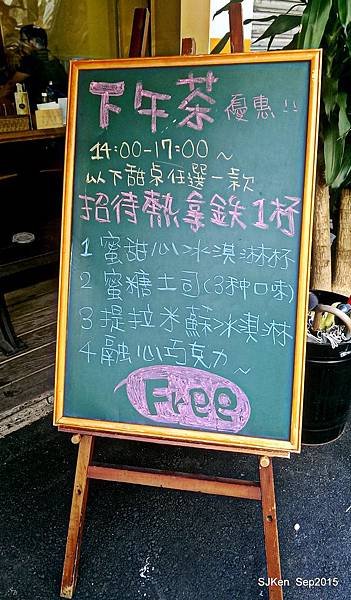 下午茶優惠!!
14:00-17:00~
以下甜桌任選一款
招待熱拿鉄1杯
1 蜜甜心冰淇淋杯
2 蜜糖土司(3種口味)
3 提拉米蘇冰淇淋
4 融心巧克力~
Free
SJKen Sep2015